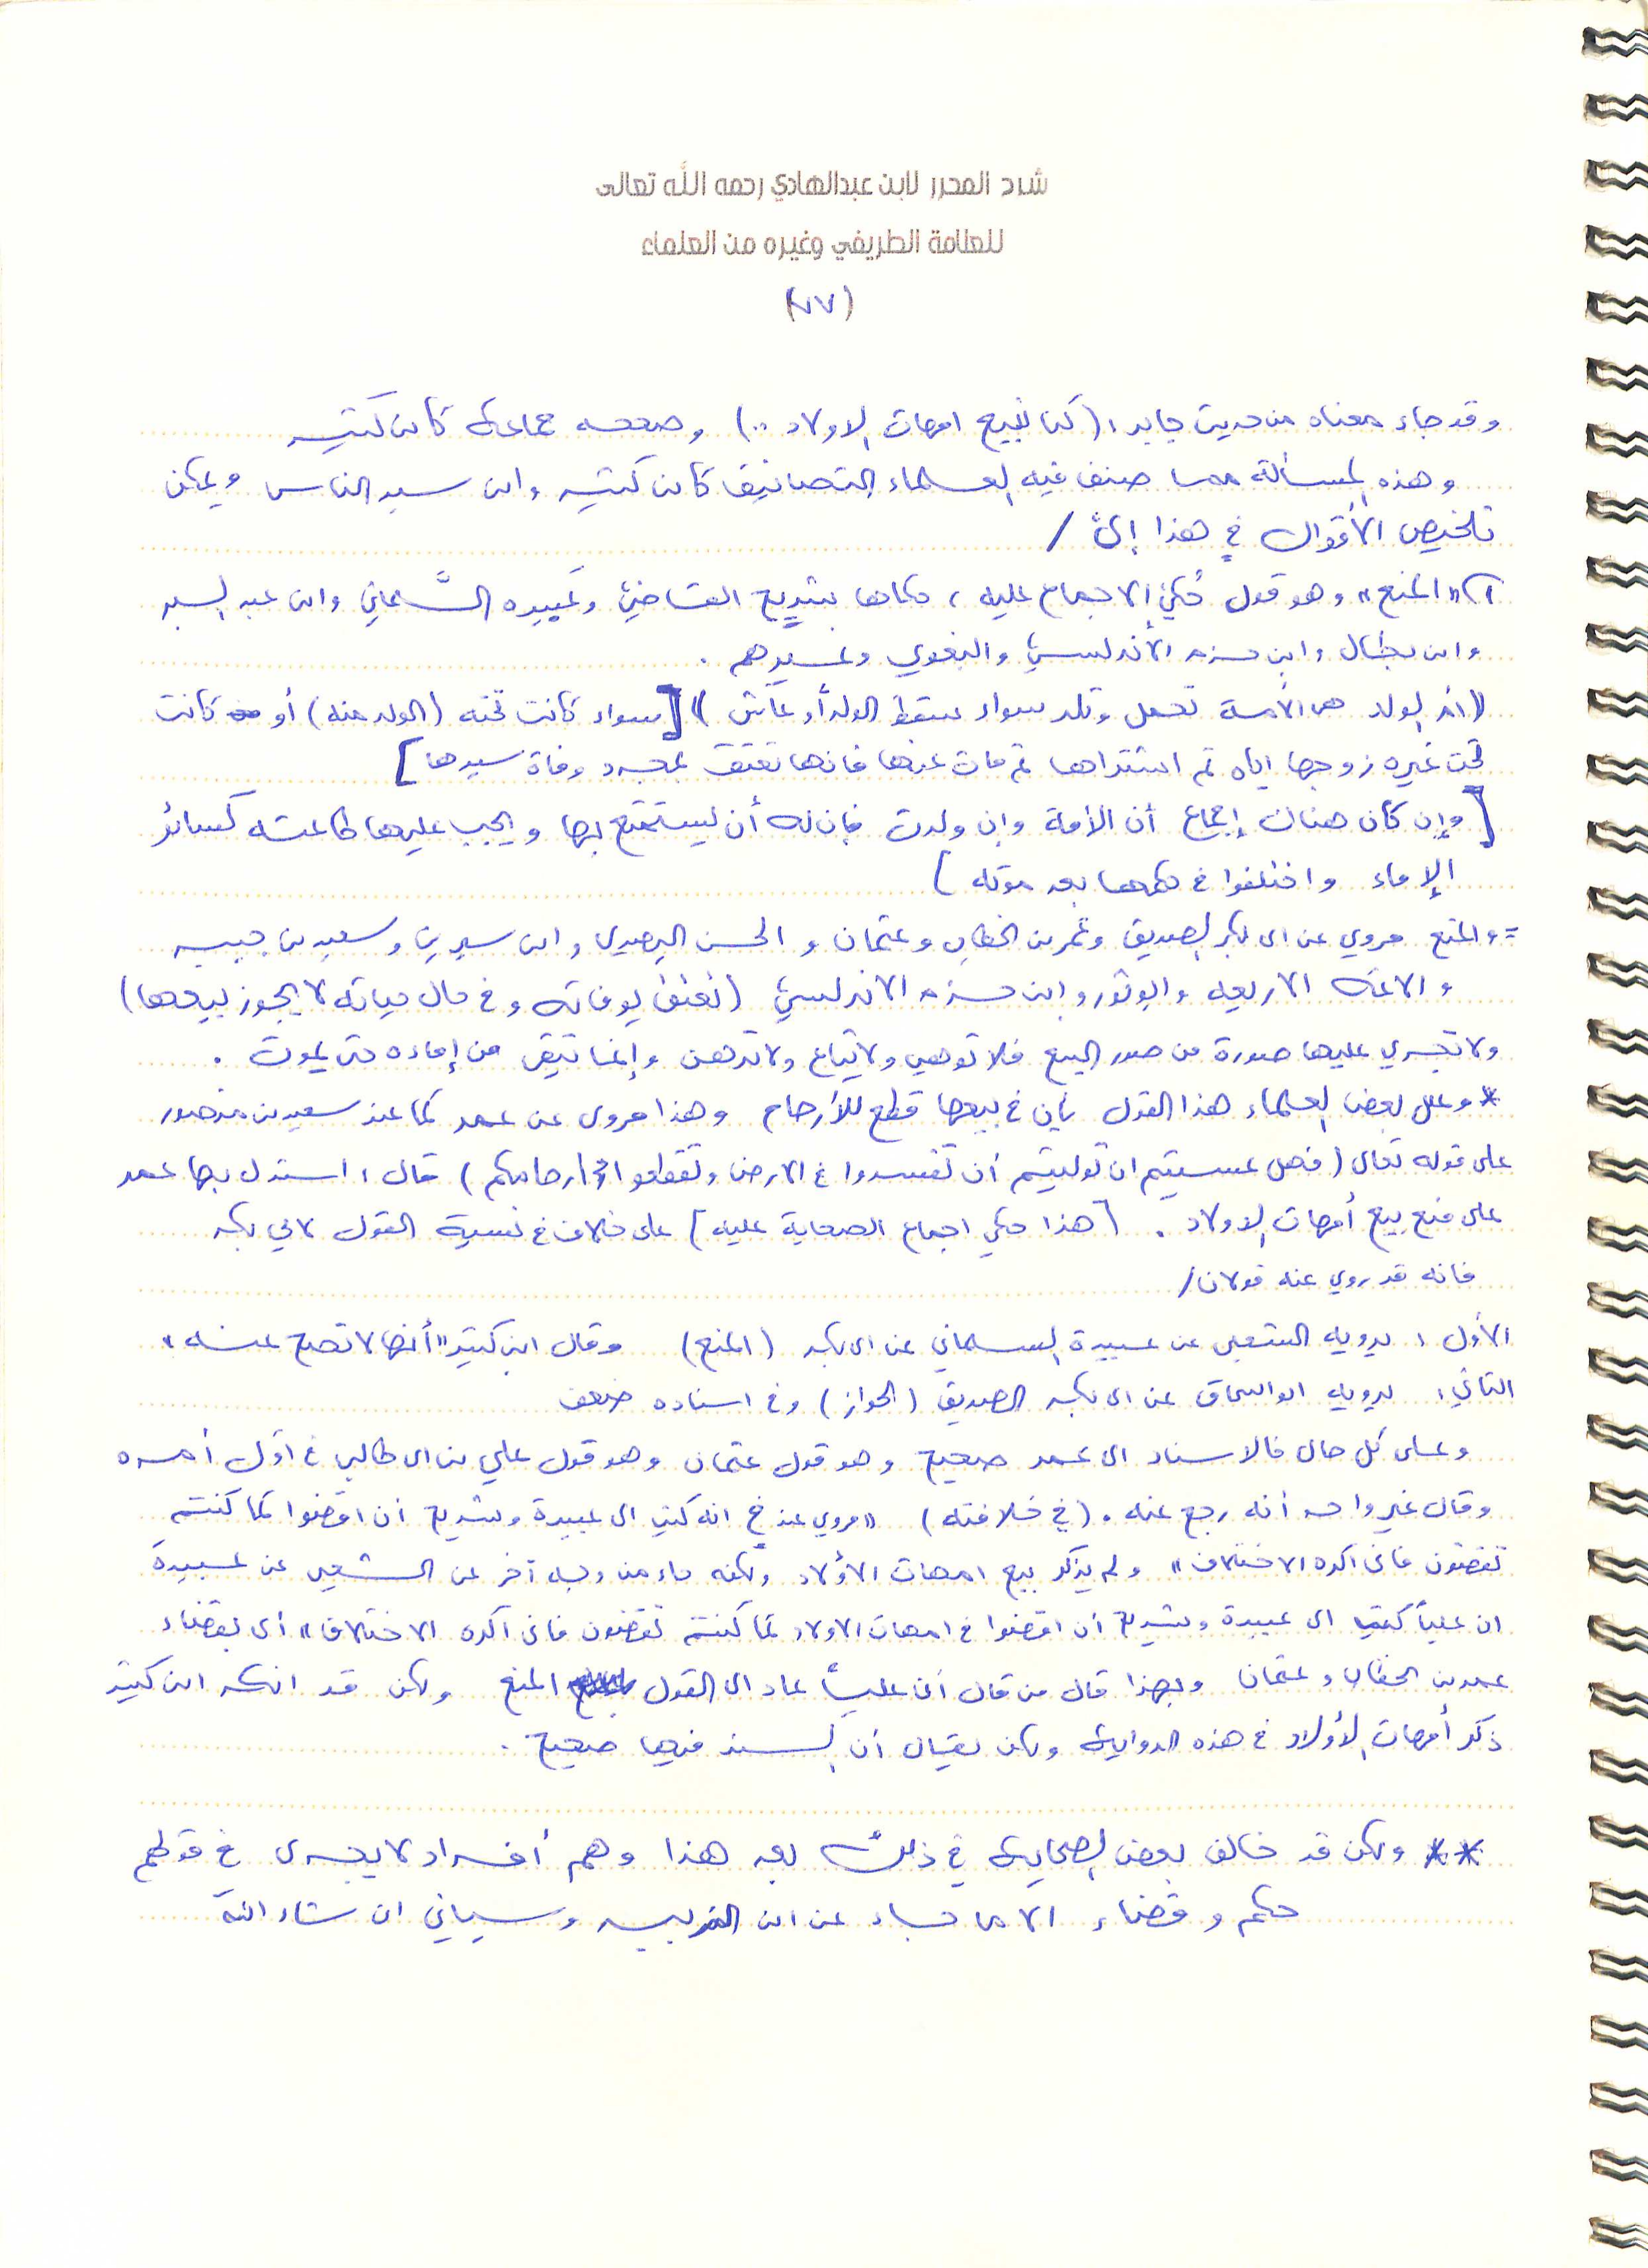 شرح المحرر لابن عبدالهادي رحمه الله تعالى
للعلامة الطريفي وغيره من العلماء
(٨٧)
وقد جاء معناه من حديث جابر: (كنا نبيع امهات الاولاد ..) وصححه جماعة كابن كثير
وهذه المسألة مما صنف فيه العلماء التصانيف كابن كثير وابن سيد الناس ويمكن
تلخيص الأقوال في هذا إلى /
١) "المنع" وهو قول حُكي الاجماع عليه، حكاها شريح القاضي وعَبِيده السَّلماني وابن عبد البر
وابن بطال وابن حزم الأندلسي والبغوي وغيرهم .
(ام الولد هي الأمة تحمل وتلد سواء سقط الولد أو عاش) [سواء كانت تحته (الولد منه) أو كانت
تحت غيره زوجها اياه ثم اشتراها ثم مات عنها فانها تعتق بمجرد وفاة سيدها]
[وإن كان هناك إجماع أن الأمة وإن ولدت فإن له أن يستمتع بها ويجب عليها طاعته كسائر
الإماء واختلفوا في حكمها بعد موته]
= والمنع مروي عن ابي بكر الصديق وعمر بن الخطاب وعثمان والحسن البصري وابن سيرين وسعيد بن جبير
والائمة الاربعه وابو ثور وابن حزم الاندلسي (تعتق بوفاته وفي حال حياته لا يجوز بيعها)
ولا تجري عليها صورة من صور البيع فلا توهب ولا تباع ولا ترهن وإنما تبقى من إماءه حتى يموت .
* وعلل بعض العلماء هذا القول بأن في بيعها قطع للأرحام وهذا مروي عن عمر كما عند سعيد بن منصور
على قوله تعالى (فهل عسيتم ان توليتم أن تفسدوا في الارض وتقطعوا ارحامكم) قال: استدل بها عمر
على منع بيع أمهات الاولاد . [هذا حكي اجماع الصحابة عليه] على خلاف في نسبة القول لابي بكر
فانه قد روي عنه قولان/
الأول: يرويه الشعبي عن عبيدة السلماني عن ابي بكر (المنع) وقال ابن كثير "أنها لا تصح عنه"
الثاني: يرويه ابو اسحاق عن ابي بكر الصديق (الجواز) وفي اسناده ضعف
وعلى كل حال فالاسناد الى عمر صحيح وهو قول عثمان وهو قول علي بن ابي طالب في أول أمره
وقال غير واحد أنه رجع عنه . (في خلافته) "مروي عند خ انه كتب الى عبيدة وشريح ان اقضوا كما كنتم
تقضون فاني اكره الاختلاف" ولم يذكر بيع امهات الأولاد ولكنه جاء من وجه آخر عن الشعبي عن عبيدة
ان علياً كتب الى عبيدة وشريح أن اقضوا في امهات الاولاد كما كنتم تقضون فاني أكره الاختلاف" أي بقضاء
عمر بن الخطاب وعثمان وبهذا قال من قال أن علياً عاد الى القول المنع ولكن قد انكر ابن كثير
ذكر أمهات الأولاد في هذه الرواية ولكن يقال أن السند فيها صحيح .
** ولكن قد خالف بعض الصحابة في ذلك بعد هذا وهم أفراد لا يجري في قولهم
حكم وقضاء الا ما جاء عن ابن الزبير وسيأتي ان شاء الله